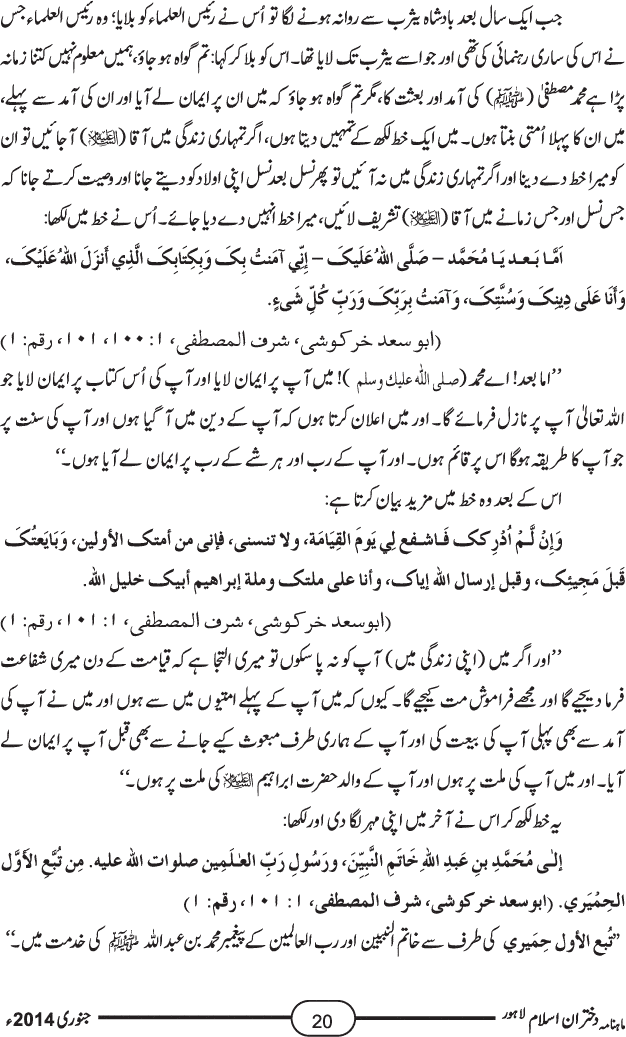 جب ایک سال بعد بادشاہ یثرب سے روانہ ہونے لگا تو اُس نے رئیس العلماء کو بلایا؛ وہ رئیس العلماء جس
نے اس کی ساری رہنمائی کی تھی اور جو اسے یثرب تک لایا تھا۔ اس کو بلا کر کہا: تم گواہ ہو جاؤ، ہمیں معلوم نہیں کتنا زمانہ
پڑا ہے محمد مصطفیٰ (ﷺ) کی آمد اور بعثت کا، مگر تم گواہ ہو جاؤ کہ میں ان پر ایمان لے آیا اور ان کی آمد سے پہلے،
میں ان کا پہلا اُمتی بنتا ہوں۔ میں ایک خط لکھ کے تمہیں دیتا ہوں، اگر تمہاری زندگی میں آقا (علیہ السلام) آ جائیں تو ان
کو میرا خط دے دینا اور اگر تمہاری زندگی میں نہ آئیں تو پھر نسل بعد نسل اپنی اولاد کو دیتے جانا اور وصیت کرتے جانا کہ
جس نسل اور جس زمانے میں آقا (علیہ السلام) تشریف لائیں، میرا خط انہیں دے دیا جائے۔ اُس نے خط میں لکھا:
اَمَّا بَعد یَا مُحَمَّد – صَلَّی اللهُ عَلَیکَ – إِنِّي آمَنتُ بِکَ وَبِکِتَابِکَ الَّذِي أَنزَلَ اللهُ عَلَیْکَ،
وَأَنَا عَلَی دِینِکَ وَسُنَّتِکَ، وَآمَنتُ بِرَبِّکَ وَرَبِّ کُلِّ شَیءٍ.
(ابو سعد خرکوشی، شرف المصطفی، ۱: ۱۰۰، ۱۰۱، رقم: ۱)
’’اما بعد! اے محمد (صلی اللہ علیک وسلم)! میں آپ پر ایمان لایا اور آپ کی اُس کتاب پر ایمان لایا جو
اللہ تعالیٰ آپ پر نازل فرمائے گا۔ اور میں اعلان کرتا ہوں کہ آپ کے دین میں آ گیا ہوں اور آپ کی سنت پر
جو آپ کا طریقہ ہوگا اس پر قائم ہوں۔ اور آپ کے رب اور ہر شے کے رب پر ایمان لے آیا ہوں۔‘‘
اس کے بعد وہ خط میں مزید بیان کرتا ہے:
وَإِنْ لَّمْ أُدْرِککَ فَاشفع لِي یَومَ القِیَامَة، ولا تنسنی، فإنی من أمتک الأولین، وَبَایَعتُکَ
قَبلَ مَجِیئِکَ، وقبل إرسال الله إیاک، وأنا علی ملتک وملة إبراهیم أبیک خلیل الله.
(ابوسعد خرکوشی، شرف المصطفی، ۱: ۱۰۱، رقم: ۱)
’’اور اگر میں (اپنی زندگی میں) آپ کو نہ پا سکوں تو میری التجا ہے کہ قیامت کے دن میری شفاعت
فرما دیجیے گا اور مجھے فراموش مت کیجیے گا۔ کیوں کہ میں آپ کے پہلے امتیوں میں سے ہوں اور میں نے آپ کی
آمد سے بھی پہلی آپ کی بیعت کی اور آپ کے ہماری طرف مبعوث کیے جانے سے بھی قبل آپ پر ایمان لے
آیا۔ اور میں آپ کی ملت پر ہوں اور آپ کے والد حضرت ابراہیم علیہ السلام کی ملت پر ہوں۔‘‘
یہ خط لکھ کر اس نے آخر میں اپنی مہر لگا دی اور لکھا:
إلٰی مُحَمَّدِ بنِ عَبدِ اللهِ خَاتَمِ النَّبِیِّنَ، ورَسُولِ رَبِّ العٰـلَمِین صلوات الله علیه. مِن تُبَّعِ الأَوَّل
الحِمْیَرِي. (ابوسعد خرکوشی، شرف المصطفی، ۱: ۱۰۱، رقم: ۱)
’’تُبع الأول حِمیَرِي کی طرف سے خاتم النبیین اور رب العالمین کے پیغمبر محمد بن عبد اللہ ﷺ کی خدمت میں۔‘‘
ماہنامہ دختران اسلام لاہور 20 جنوری 2014ء